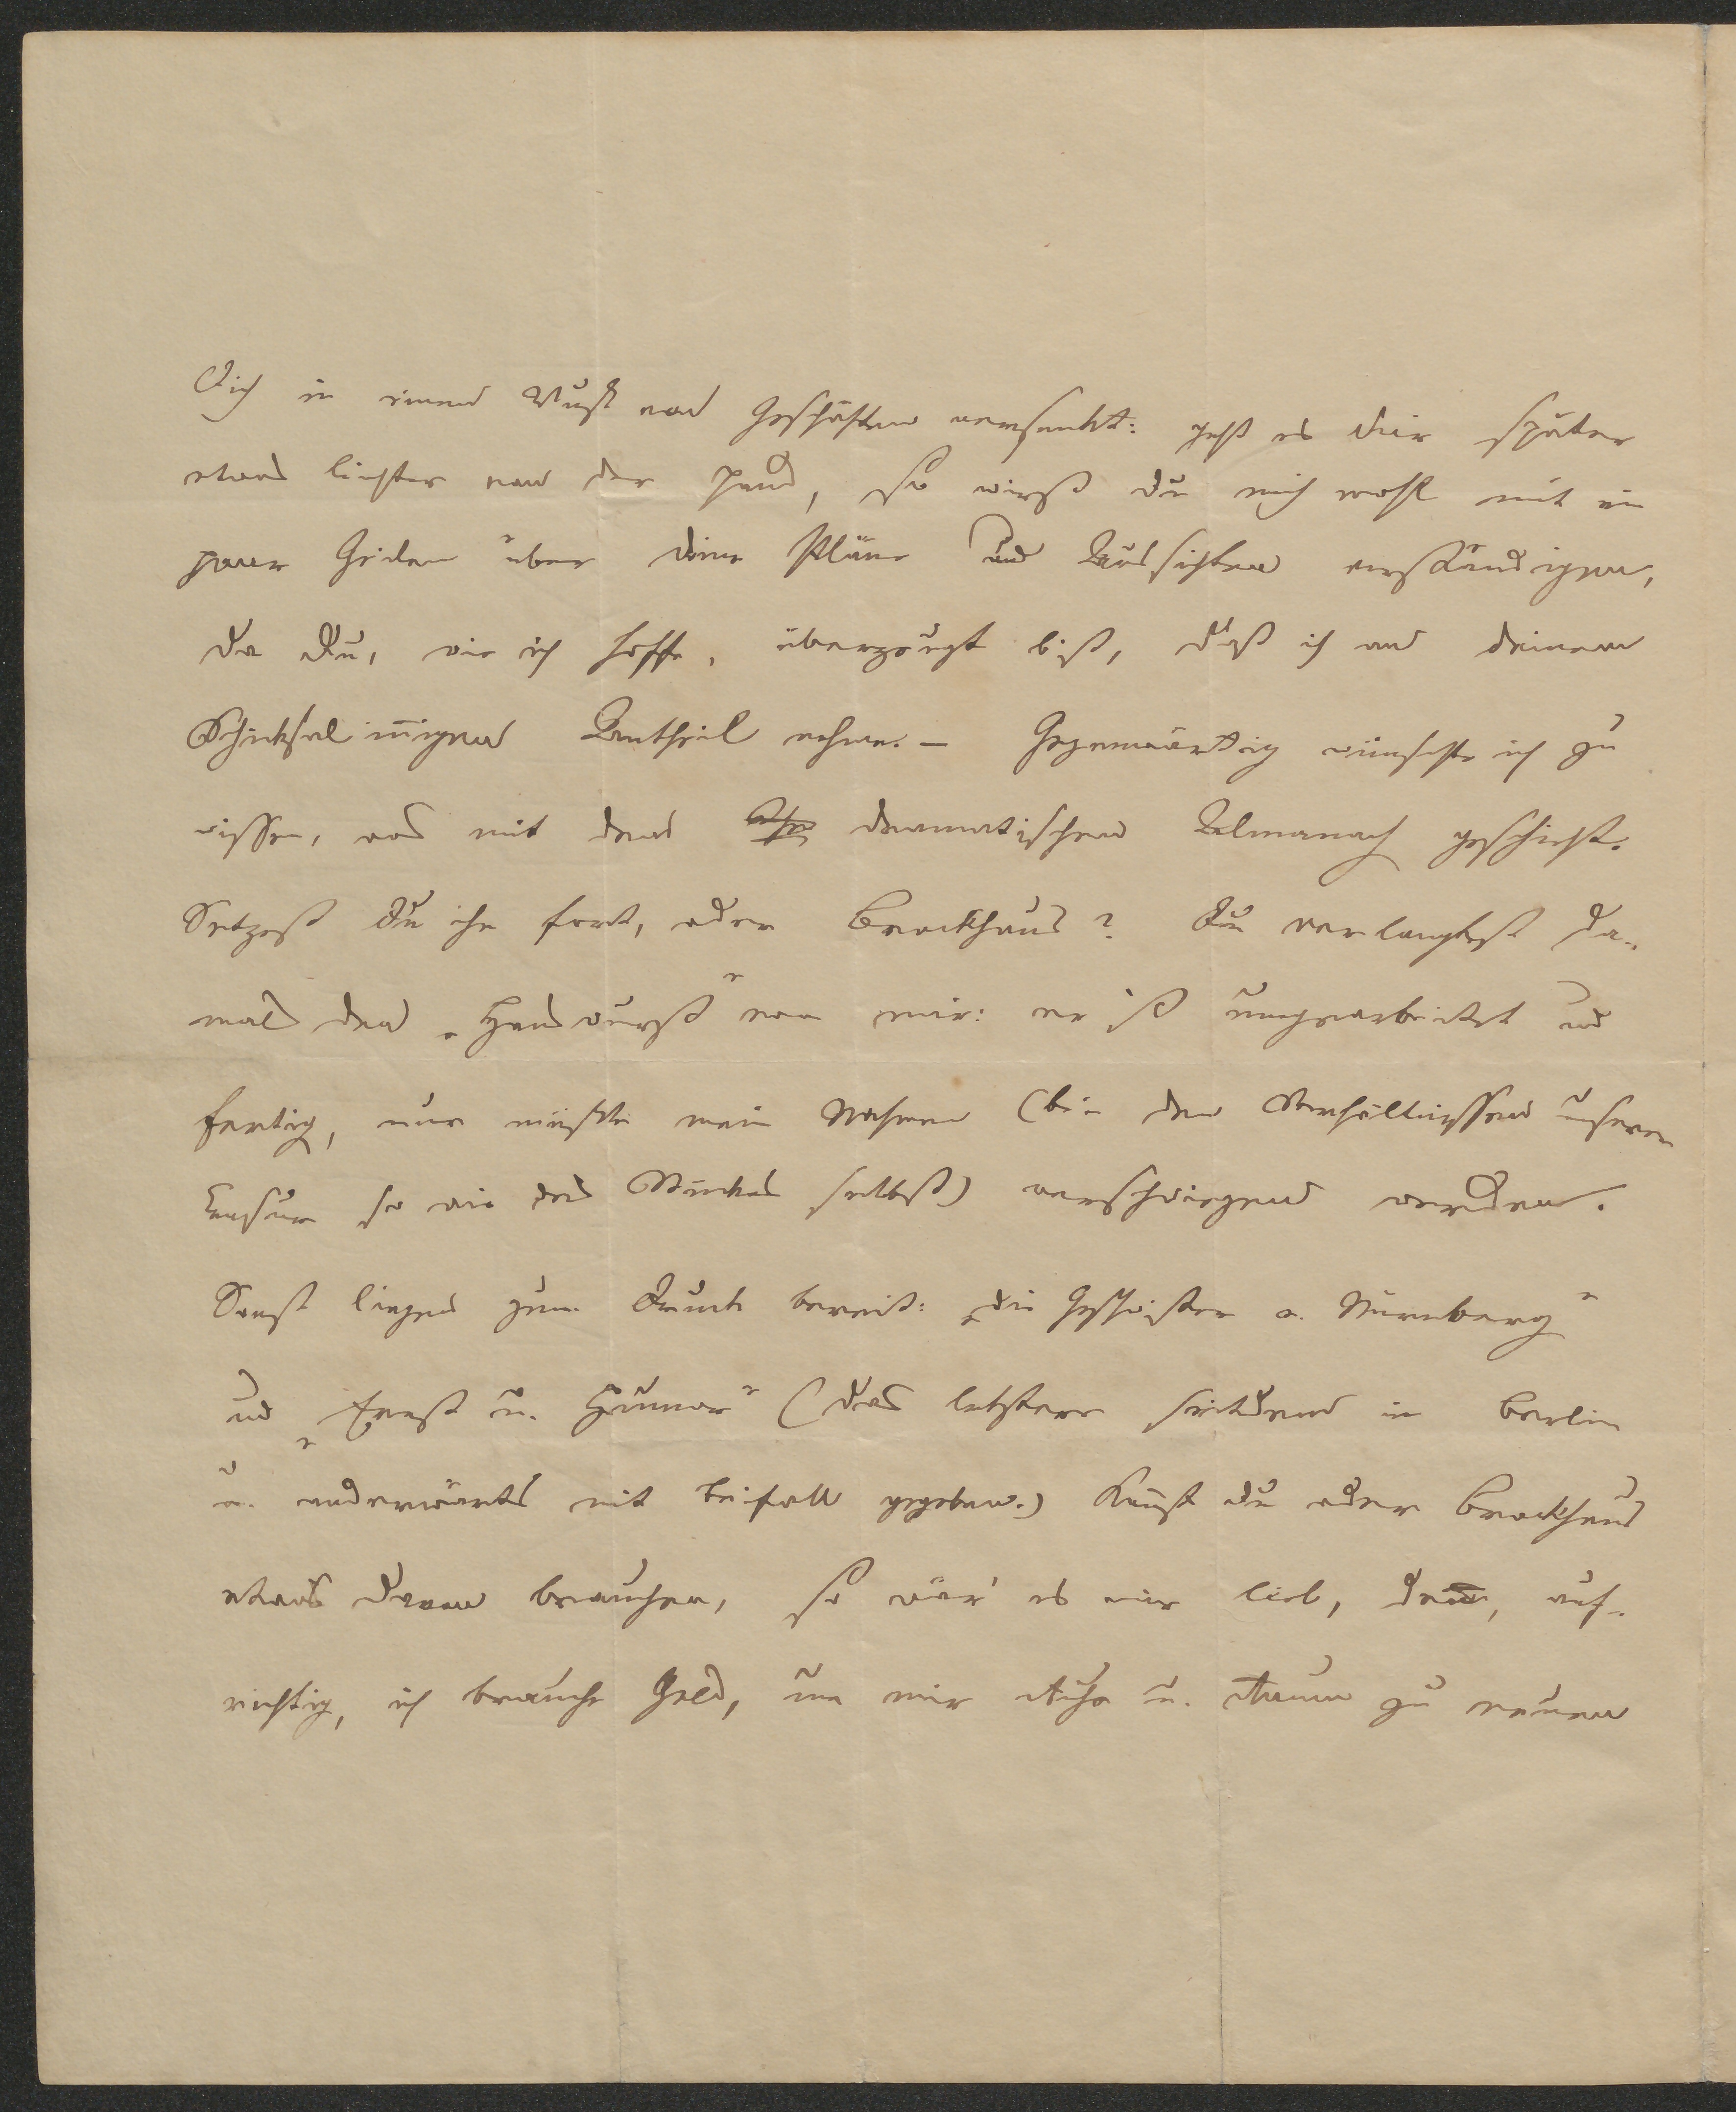 Dich in einem Wust von Geschäften versenkt: geht es dir später
etwas leichter von der Hand, so wirst du mich wohl mit ein
paar Zeilen über deine Pläne und Aussichten verständigen,
da du, wie ich hoffe, überzeugt bist, daß ich an deinem
Schicksal innigen Antheil nehme. – Gegenwärtig wünschte ich zu
wissen, was mit dem dramatischen Almanach geschieht.
Setzest du ihn fort, oder Brockhaus? Du verlangtest da-
mals den „Hanswurst" von mir: er ist umgearbeitet und
fertig, nur müßte mein Nahmen (bei den Verhältnissen unserer
Censur so wie des Stückes selbst) verschwiegen werden.
Sonst liegen zum Druck bereit: „die Geschwister v. Nürnberg"
und „Ernst u. Humor" (das letztere seitdem in Berlin
u. anderwärts mit Beifall gegeben.) Kannst du oder Brockhaus
etwas davon brauchen, so wär' es mir lieb, denn, auf-
richtig, ich brauche Geld, um mir Ruhe u. Raum zu neuen